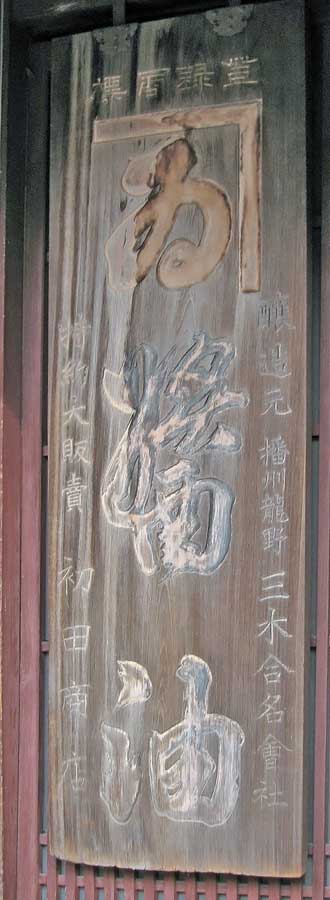 登録商標
醸造元 播州龍野 三木合名會社
油
特約大販賣 初田商店